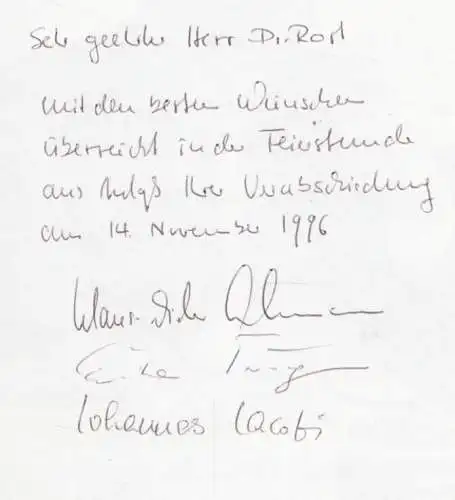 Sehr geehrter Herr Dr. Rost
mit den besten Wünschen
überreicht in der Feierstunde
aus Anlaß Ihrer Verabschiedung
am 14. November 1996
Klaus-Dieter
Johannes Jacobi